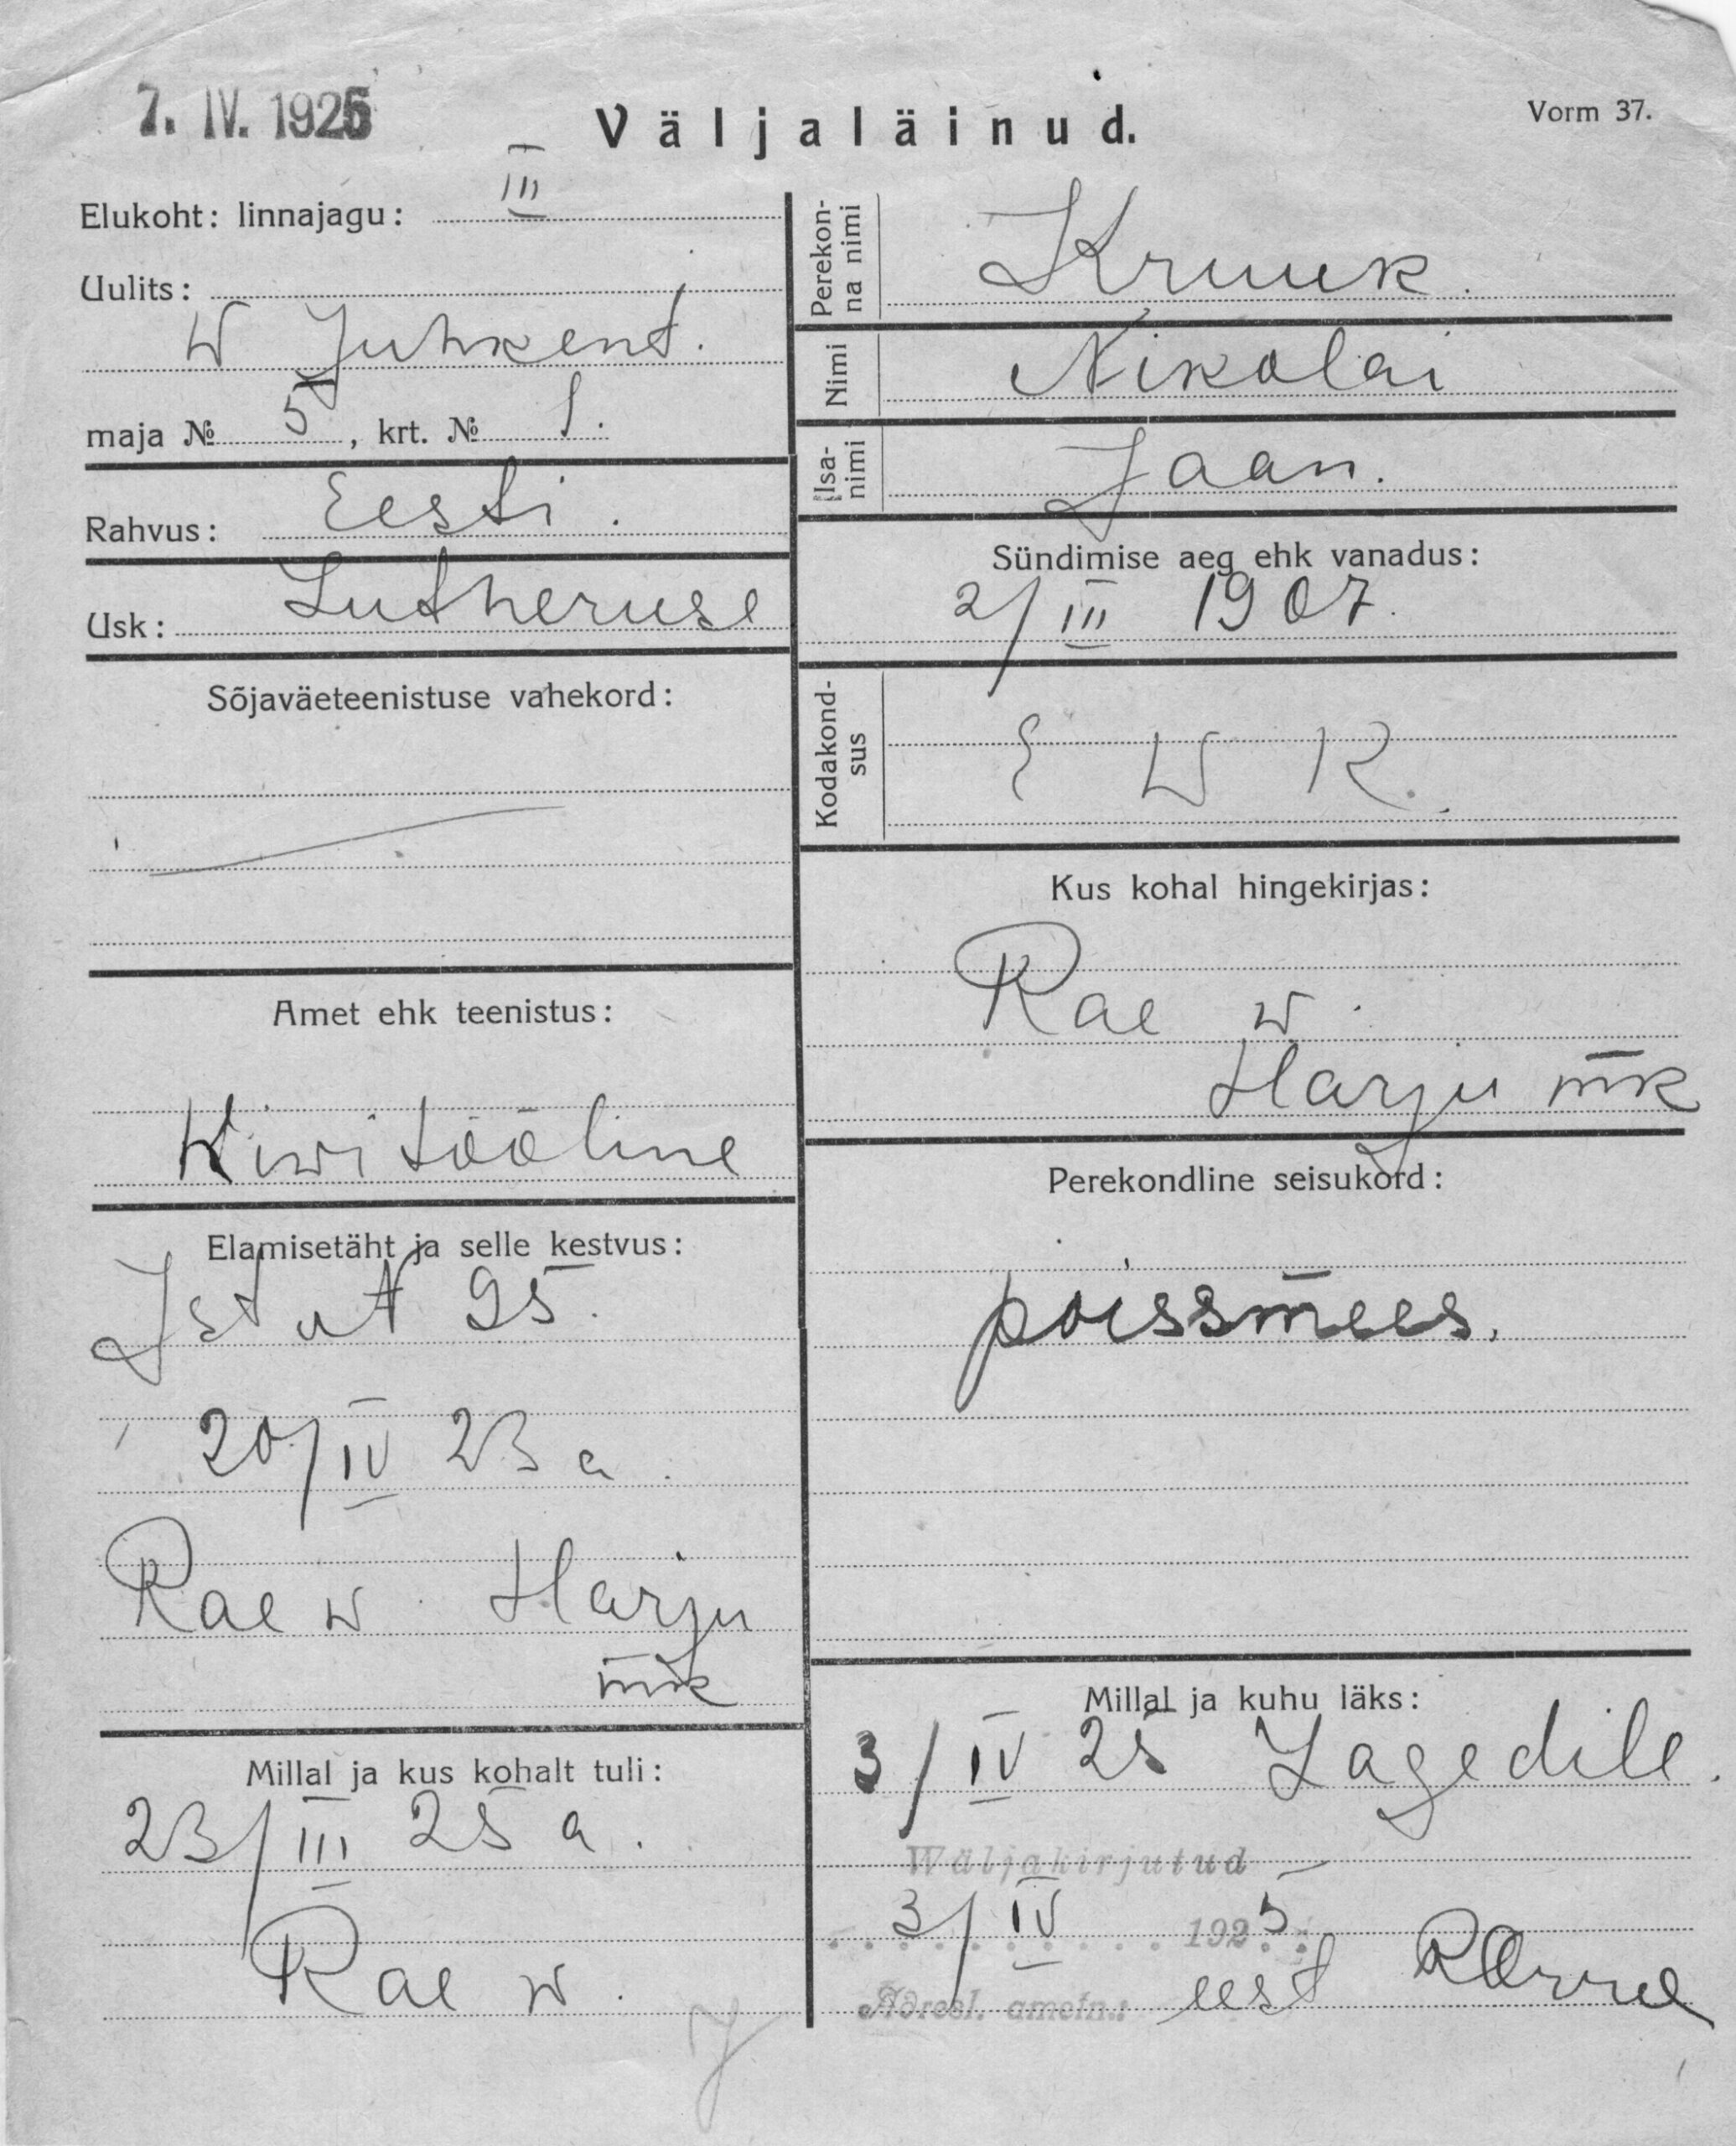 7. IV. 1925
Väljaläinud.
Vorm 37.
Elukoht: linnajagu: III
Uulits:
W Juhkent.
maja № 5, krt. № 1.
Rahvus: Eesti.
Usk: Lutheruse
Sõjaväeteenistuse vahekord:
Amet ehk teenistus:
Kiwitööline
Elamisetäht ja selle kestvus:
95.
20/IV 23 a.
Rae w. Harju
mk
Millal ja kus kohalt tuli:
23/III 25 a.
Rae w.
Perekon-
na nimi
Kruuk.
Nimi Nikolai
Isa-
nimi
Jaan.
Sündimise aeg ehk vanadus:
2/III 1907.
Kodakond-
sus
E W R.
Kus kohal hingekirjas:
Rae w.
Harju mk
Perekondline seisukord:
poissmees.
Millal ja kuhu läks:
3/IV 25 Lagedile.
Wäljakirjutud
3/IV 1925
Adresl. ametn.: eest